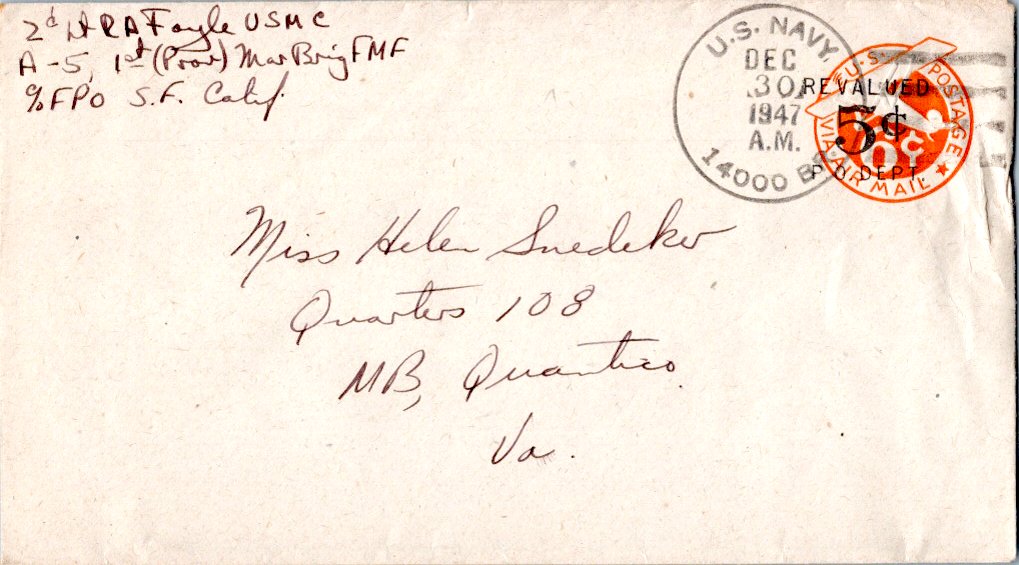 2d Lt R A Foyle USMC
A-5, 1st (Prov) Mar Brig FMF
c/o FPO S.F. Calif.
U.S. NAVY,
DEC
30
1947
A.M.
14000 B
U.S. POSTAGE
REVALUED
5¢
10¢
P.O. DEPT.
VIA AIR MAIL
Miss Helen Snedeker
Quarters 108
MB, Quantico
Va.